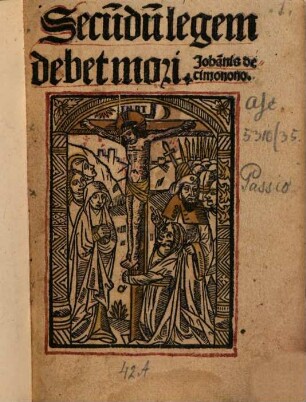 Secūdū legem
debet mori. Johānis de
cimonono.
INRI
Asc
5316/35.
Passio
42.A